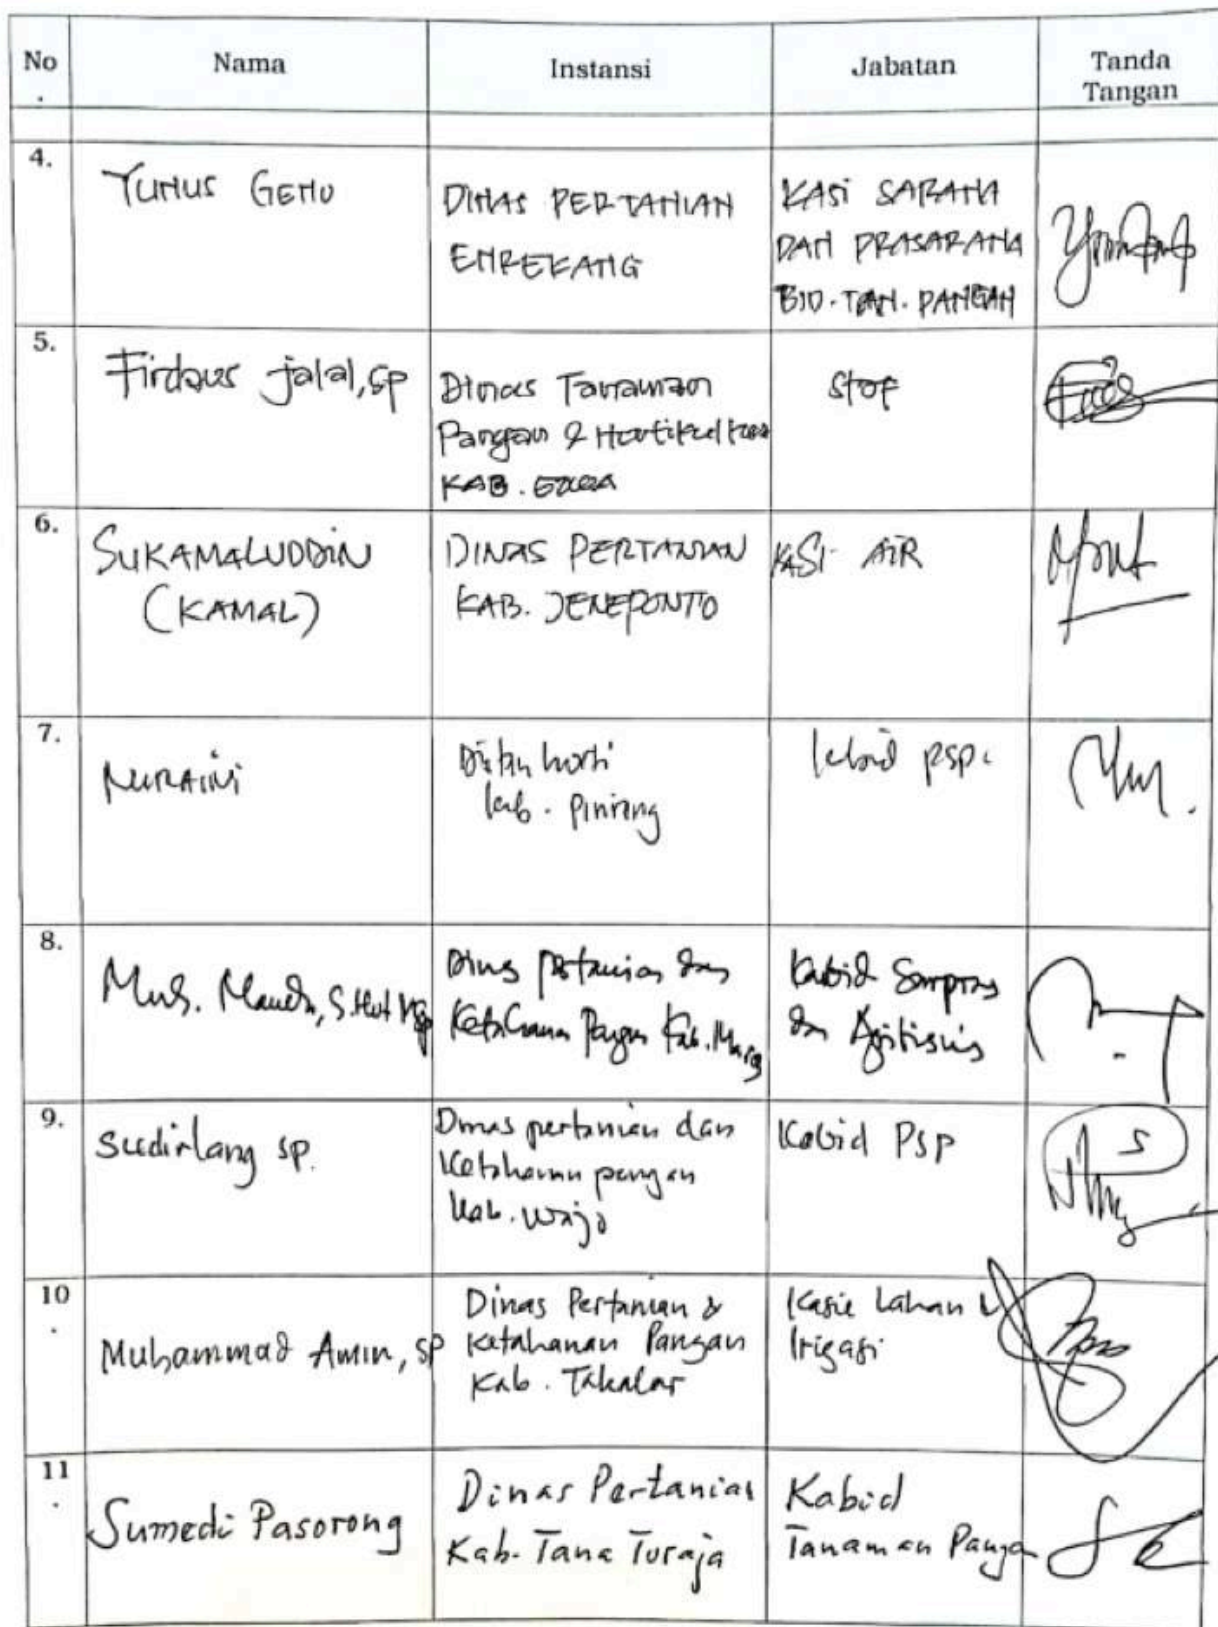 No
.
Nama
Instansi
Jabatan
Tanda
Tangan
4.
YUNUS GENU
DINAS PERTANIAN
ENREKANG
KASI SARANA
DAN PRASARANA
BID. TAN. PANGAN
5.
Firdaus jalal, sp
Dinas Tanaman
Pangan & Hortikultura
KAB. GOWA
staf
6.
SUKAMALUDDIN
(KAMAL)
DINAS PERTANIAN
KAB. JENEPONTO
KASI AIR
7.
NURAINI
Distan horti
kab. pinrang
kabid psp.
8.
Muh.
Dinas Pertanian dan
Ketahanan Pangan Kab. Maros
Kabid Sarpras
dan
9.
sudirlang sp.
Dinas pertanian dan
Ketahanan pangan
kab. wajo
Kabid Psp
10
.
Muhammad Amin, SP
Dinas Pertanian &
Ketahanan Pangan
Kab. Takalar
Kasie Lahan &
Irigasi
11
.
Sumedi Pasorong
Dinas Pertanian
Kab. Tana Toraja
Kabid
Tanaman Panga